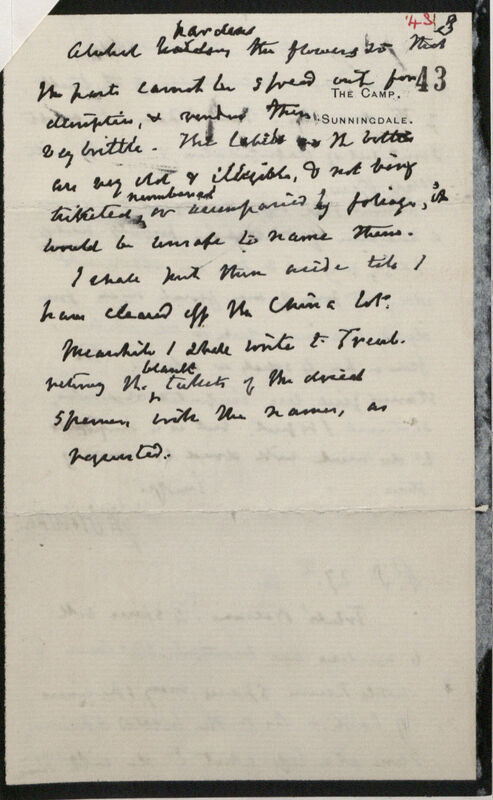 '43
43
THE CAMP,
SUNNINGDALE.
hardens
Alcohol the flowers so that
the parts cannot be spread out for
description, & renders them
very brittle. The labels on the bottles
are very old & illegible, & not being
numbered
ticketed, or accompanied by foliage, it
would be unsafe to name them.
I shall put them aside till I
have cleared off the China lot.
Meanwhile I shall write to Treub.
blank
returning the tickets of the dried
specimens with the names, as
requested.